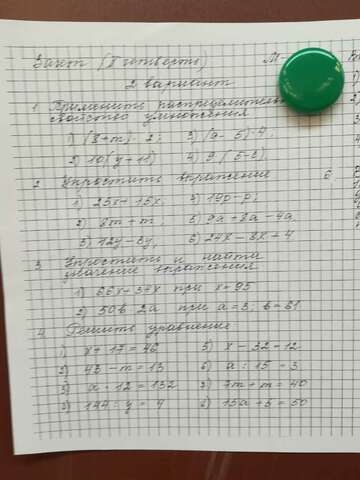 Зачет (II четверть) М-
2 вариант
1. Применить распределительн
свойство умножения
1) (8+m)· 2; 3) (a- 5)·4;
2) 10(y+11) 4) 9 ( 5-
2. Упростить выражение 6
1) 25x+15x; 4) 19p-p;
2) 6m+m; 5) 9a+8a-4a
3) 12y-8y; 6) 24x-8x+4
3. Упростить и найти
значение выражения
1) 66x+34x при x=95
2) 50b·2a при a=3; b=61
4. Решить уравнение
1) x+17=46 5) x-32=12
2) 43-m=13 6) a:15=3
3) a·12=132 7m+m=40
144:y=4 13a+5=50